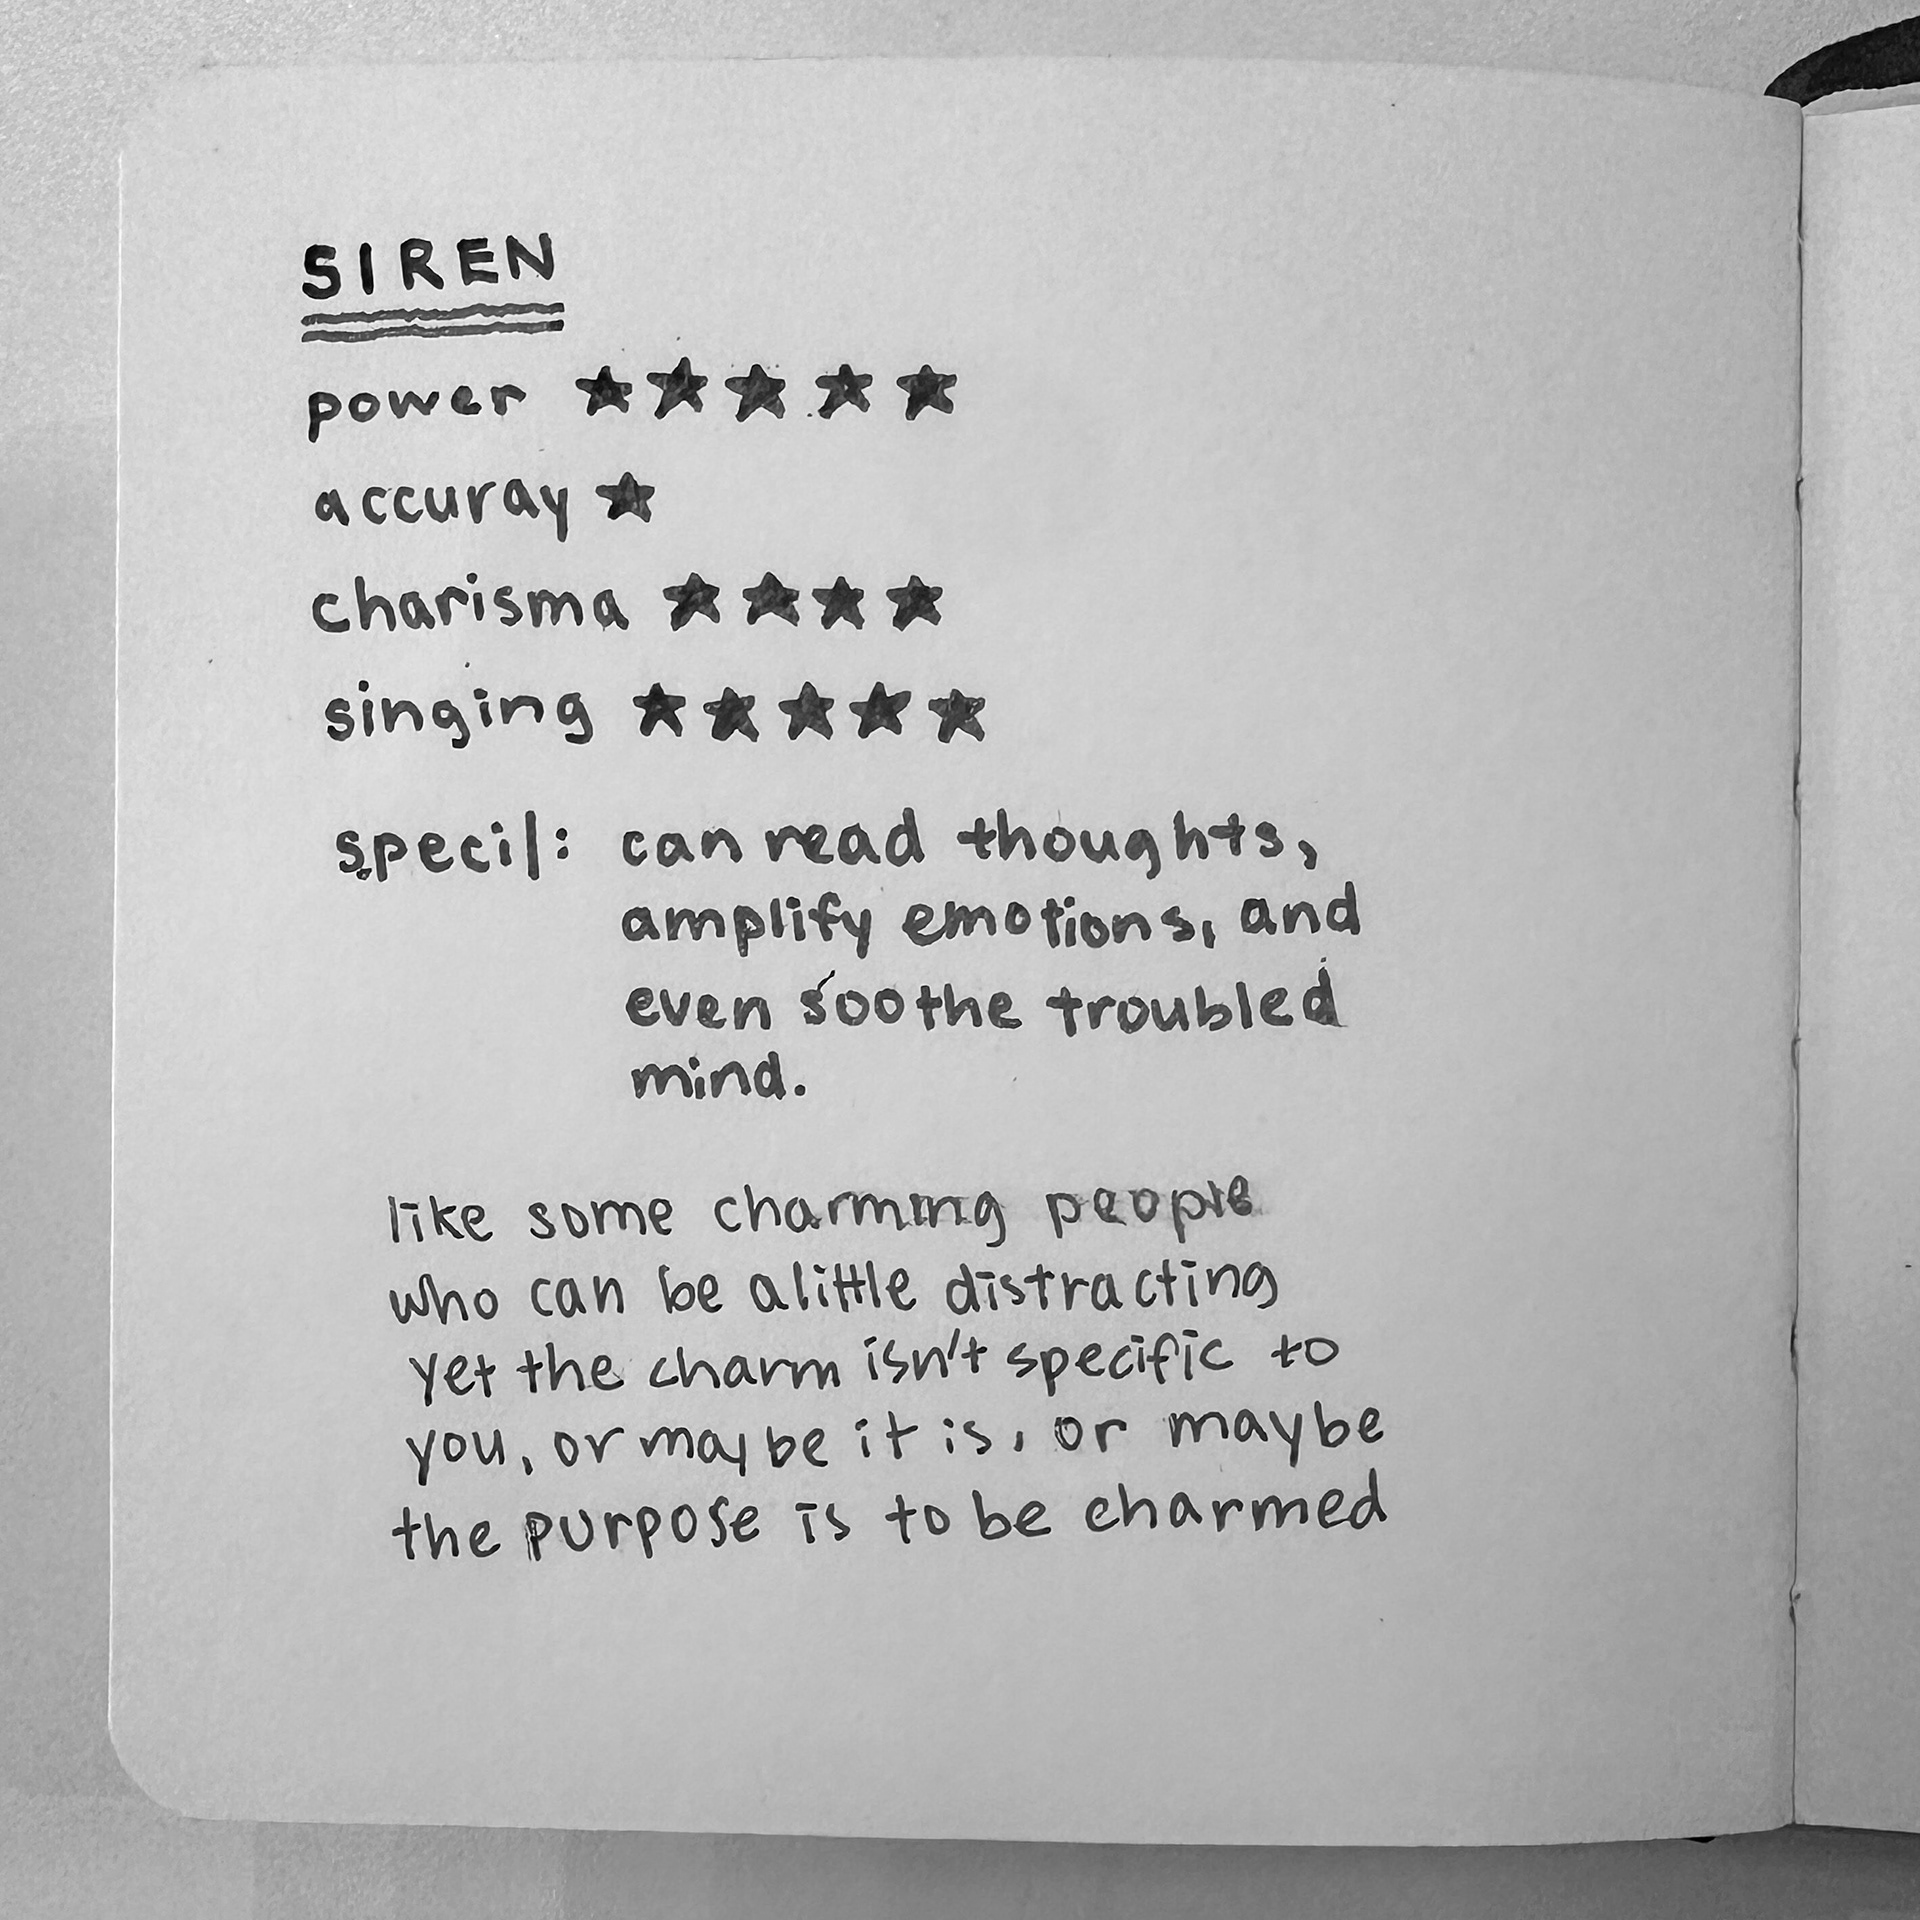 SIREN
power ★★★★★
accuray ★
charisma ★★★★
singing ★★★★★
specil: can read thoughts,
amplify emotions, and
even soothe troubled
mind.
like some charming people
who can be a little distracting
yet the charm isn't specific to
you, or maybe it is, or maybe
the purpose is to be charmed